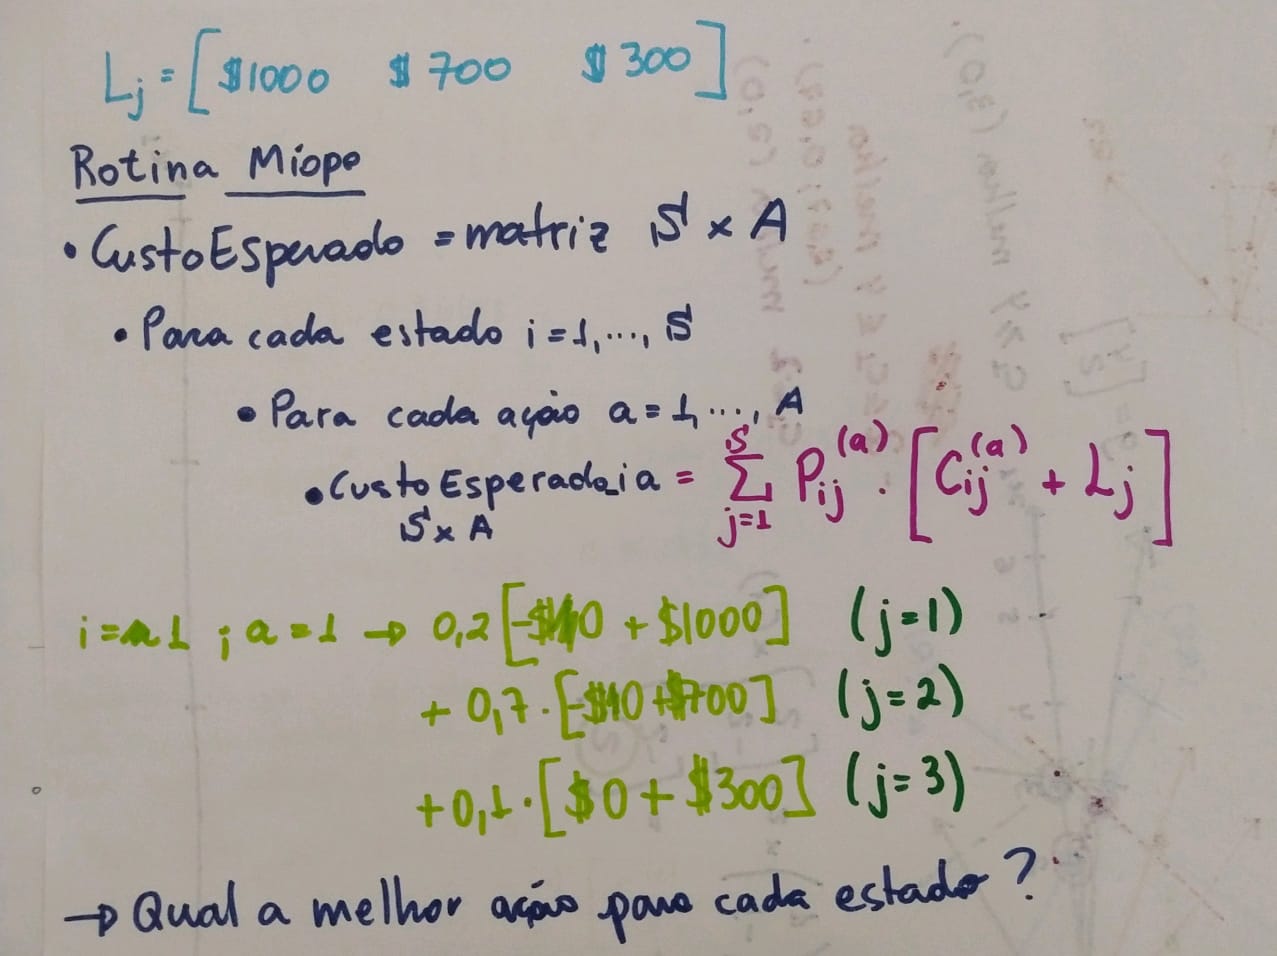 Lj = [$1000 $700 $300]
Rotina Míope
• CustoEsperado = matriz S x A
• Para cada estado i = 1, ..., S
• Para cada ação a = 1, ..., A
• CustoEsperado_ia = S ∑ j=1 Pij^(a) . [Cij^(a) + Lj]
S x A
i = 1 ; a = 1 → 0,2 [-$10 + $1000] (j=1)
+ 0,7 . [-$10 + $700] (j=2)
+ 0,1 . [$0 + $300] (j=3)
→ Qual a melhor ação para cada estado?